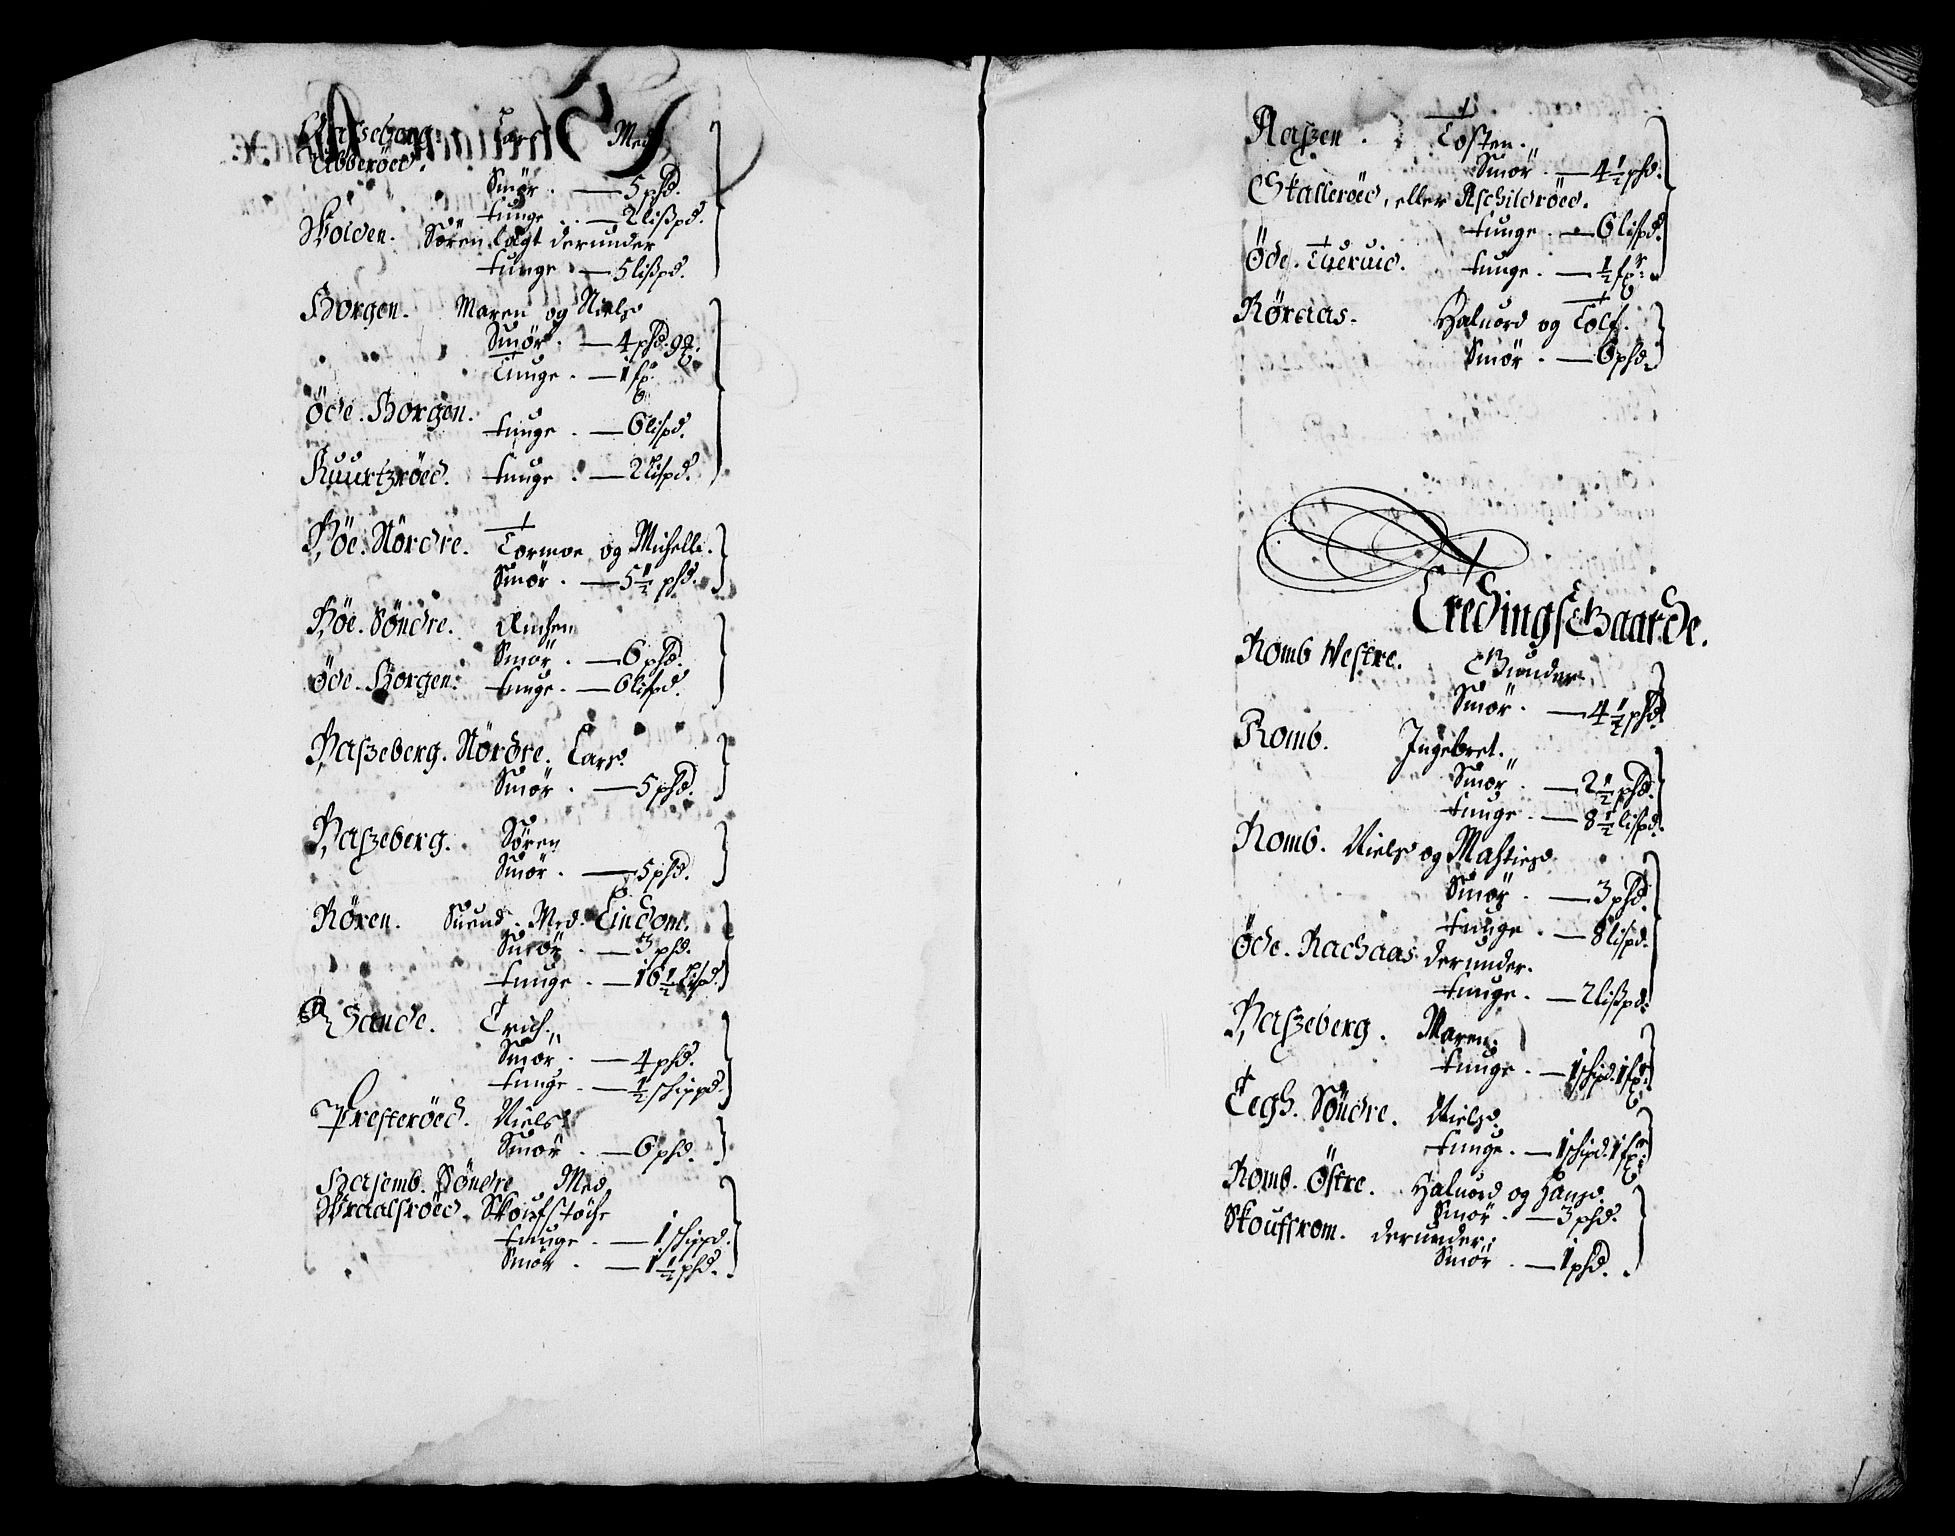 Lars Med
Ubberöed.
Smör. — 5 phd.
tunge .. — 2 lißpd.
Wolden. Sören lagt derunder
tunge — 5 lißpd.
Borgen. Maren og Niels
Smör. — 4 phd. 9
Tunge. — 1 fp
Öde. Borgen.
tunge. — 6 lispd.
Kuurtzröed. tunge. — 2 lispd.
Böe. Nördre. Tormoe og Michell.
Smör. — 5½ phd.
Böe. Söndre. Amhen
Smör. — 6 phd.
Öde. Borgen. tunge. — 6 lispd.
Haszeberg. Nördre. Lars.
Smör. — 5 phd.
Haszeberg. Sören
Smör. — 5 phd.
Rören. Suend. Med. Eindom.
Smör. — 3 phd.
tunge. — 16½ lispd.
Sande. Erich.
Smör. — 4 phd.
tunge. — ½ schippd.
Presteröed. Niels
Smör. — 6 phd.
Basemb. Söndre Med
Wraalsröed. Skoufstöche
tunge. — 1 schippd.
Smör. — 1½ phd.
Raszen. Tosten.
Smör. — 4½ phd.
Skalleröed, eller Aschildröed.
tunge. — 6 lispd.
Öde. Tueruid. tunge. — ½ fp
Röraas. Haluord og Tolf.
Smör. — 6 phd.
TredingsGaarde.
Romb Westre. Gunder
Smör. — 4½ phd.
Romb. Ingebret.
Smör. — 2½ phd.
tunge. — 8½ lispd.
Romb. Niels og Mathies
Smör. — 3 phd.
tunge. — 8 lispd.
Öde. Rachaas derunder.
tunge. — 2 lißpd.
Haszeberg. Maren.
tunge. — 1 schipd. 1 fp
Tegh. Söndre. Niels.
tunge. — 1 schipd. 1 fp
Romb. Östre. Haluord og Hans.
Smör. — 3 phd.
Skoufrom. derunder.
Smör. — 1 phd.